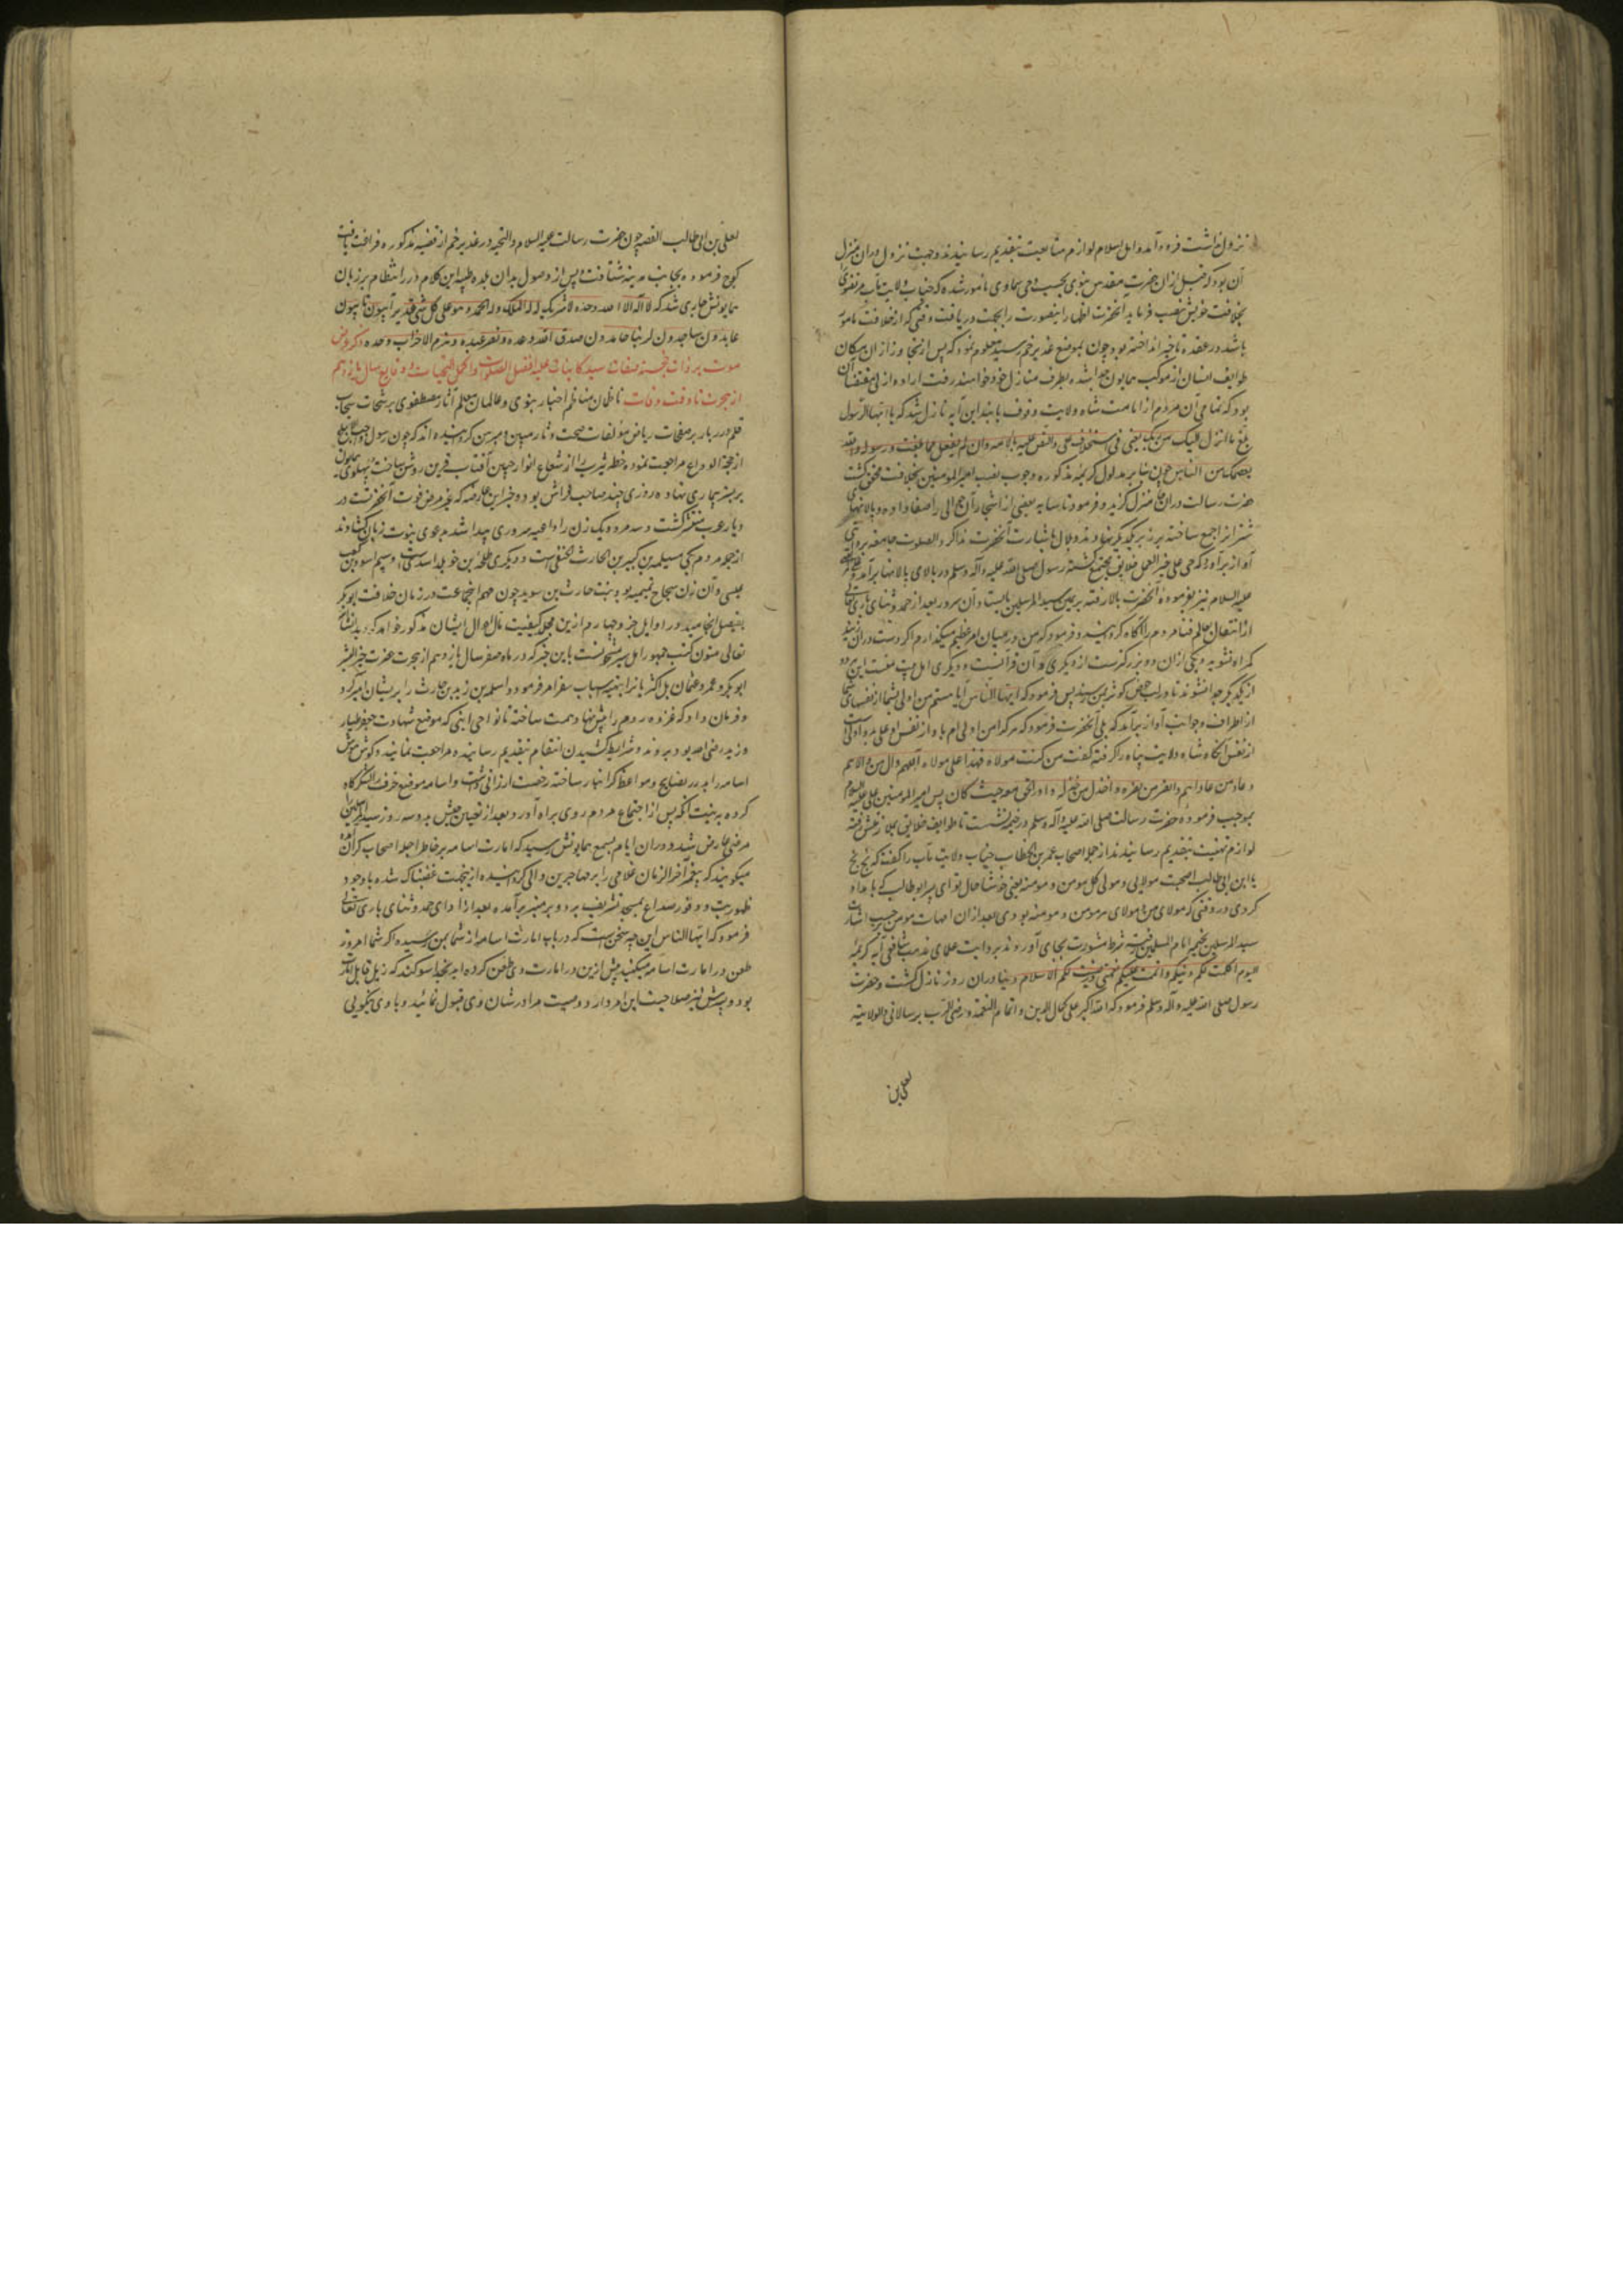 نزول نداشت فرود آمد و اهل اسلام لوازم متابعت بتقدیم رسانیدند و جهت نزول دران منزل
آن بود که قبل ازان حضرت مقدس نبوی بحسب وحی سماوی مامور شده که جناب ولایت مآب مرتضوی را
بخلافت خویش نصب فرماید انحضرت اظهار اینصورت را بجهت دریافت وقتی که از خلافت مامون
باشد در عقده تاخیر انداخته بود چون بموضع غدیر خم رسید معلوم نمود که پس ازینجا وزازان مکان
طوایف انسان از موکب همایون جدا شده بطرف منازل خود خواهند رفت اراده ازلی مقتضی آن
بود که تمامی آن مردم از امامت شاه ولایت وقوف یابند این آیه نازل شد که یا ایها الرسول
بلغ ما انزل الیک من ربک یعنی فی استخلاف علی والنص علیه بالامامه وان لم تفعل فما بلغت رسالته والله
یعصمک من الناس چون بنابر مدلول کریمه مذکوره وجوب نصب امیر المومنین بخلافت محقق گشت
حضرت رسالت دران منزل گزید و فرمود تا سایه بعضی از اشجار آن حوالی را صفا داده و پالانهای
شتر را جمع ساخته بر زبر یکدیگر نهادند و بلال باشارت آنحضرت مذاکر والصلوت جامعه بر
آواز برآورد که حی علی خیر العمل خلایق مجتمع گشته رسول صلی الله علیه و آله وسلم در بالای پالانها برآمد و علی
علیه السلام نیز بفرموده آنحضرت بالا رفته بریمین سید المرسلین بایستاد و آن سرور بعد از حمد و ثنای باری تعالی
از انتقال بعالم فنا مردم را آگاه گردانید و فرمود که من در میان شما امر عظیم میگذارم اگر دست دران زنید
گمراه نشوید و یکی ازان دو بزرگترست از دیگری و آن قرآنست و دیگری اهل بیت منست این دو
از یکدیگر جدا نشوند تا در لب حوض کوثر بمن رسند پس فرمود که ایها الناس آیا نیستم من اولی بشما از نفسهای شما
از اطراف و جوانب آواز برآمد که بلی آنحضرت فرمود که هر که را من اولی ام باو از نفس او علی باو اولی است
از نفس او آنگاه شاه ولایت پناه را گرفته گفت من کنت مولاه فهذا علی مولاه اللهم وال من والاه
و عاد من عاداه وانصر من نصره واخذل من خذله وادر الحق معه حیث کان پس امیر المومنین علی علیه السلام
بموجب فرموده حضرت رسالت صلی الله علیه و آله وسلم در خیمه نشست تا طوایف خلایق بملازمتش رفته
لوازم تهنیت بتقدیم رسانیدند از جمله اصحاب عمر بن الخطاب جناب ولایت مآب را گفت که بخ بخ
یا ابن ابی طالب اصبحت مولایی و مولی کل مومن و مومنة یعنی خوشا حال تو ای پسر ابو طالب که بامداد
کردی در وقتی که مولای من و مولای هر مومن و مومنه بودی بعد ازان امهات مومنین حسب اشارت
سید المرسلین بخیمه امام المسلمین رفته شرط مشورت بجای آوردند بروایت علمای مذهب شافعی آیه کریمه
الیوم اکملت لکم دینکم واتممت علیکم نعمتی ورضیت لکم الاسلام دینا دران روز نازل گشت و حضرت
رسول صلی الله علیه و آله وسلم فرمود که الله اکبر علی اکمال الدین و اتمام النعمة و رضی الرب برسالاتی والولایة
لعلی بن
لعلی بن ابی طالب القصه چون حضرت رسالت علیه السلام والتحیه در غدیر خم از قضیه مذکوره فراغت یافت
کوچ فرموده بجانب مدینه شتافت و پس از وصول بدان بلده طیبه این کلام درر انتظام بر زبان
همایونش جاری شد که لا اله الا الله وحده لا شریک له له الملک وله الحمد وهو علی کل شی قدیر آیبون تایبون
عابدون ساجدون لربنا حامدون صدق الله وعده ونصر عبده وهزم الاحزاب وحده ذکر عروض
موت بر ذات خجسته صفات سید کاینات علیه افضل الصلوات واکمل التحیات و وقایع سال یازدهم
از هجرت تا وقت وفات ناظمان مناظم اخبار نبوی و عالمان معلم آثار مصطفوی برشحات سحاب
قلم درر بار بر صفحات ریاض مؤلفات صحت دثار مبین و مبرهن گردانیده اند که چون رسول واجب التبجیل
از حجة الوداع مراجعت نموده خطه یثرب را از شعاع انوار جبین آفتاب قرین روشن ساخت پهلوی همایون
بر بستر بیماری نهاده روزی چند صاحب فراش بود و خبر این عارضه که بمرض فوت آنحضرت در
دیار عرب منتشر گشت و سه مرد و یک زن را داعیه سروری پیدا شد بدعوی نبوت زبان گشادند
از جمله مردم یکی مسیلمه بن کبیر بن الحارث الحنفی است و دیگری طلحه بن خویلد اسدی است و سیم اسود بن کعب
عنسی و آن زن سجاح تمیمیه بود بنت حارث بن سوید چون مهم این جماعت در زمان خلافت ابو بکر
بفیصل انجامید در اوایل جزو چهارم ازین مجلد کیفیت مآل احوال ایشان مذکور خواهد گردید انشاالله
تعالی متون کتب جمهور اهل سیر مشحونست باین خبر که در ماه صفر سال یازدهم از هجرت حضرت خیر البشر
ابو بکر و عمر و عثمان بل اکثر یاران را بتهیه اسباب سفر امر فرمود و اسامه بن زید بن حارث را بر ایشان امیر کرد
و فرمان داد که غزوه روم را پیش نهاد همت ساخته تا نواحی ابنی که موضع شهادت جعفر طیار
و زید رضی الله بود بروند و شرایط کشیدن انتقام بتقدیم رسانیده مراجعت نمایند و گوش هوش
اسامه را بدرر نصایح و مواعظ گرانبار ساخته رخصت ارزانی داشت و اسامه موضع جرف را لشکرگاه
کرده به نیت آنکه پس از اجتماع مردم روی براه آورد بعد از تعیین جیش بدو سه روز سید المرسلین را
مرضی عارض شد و دران ایام بسمع همایونش رسید که امارت اسامه بر خاطر اجله اصحاب گران آمده
میگویند که پیغمبر آخر الزمان غلامی را بر مهاجرین والی گردانیده ازین جهت غضبناک شده باوجود
ظهور تب و وفور صداع بمسجد تشریف برد و بر منبر برآمده بعد از ادای حمد و ثنای باری تعالی
فرمود که ایها الناس این چه سخن است که در باب امارت اسامه از شما بمن رسیده اگر شما امروز
طعن در امارت اسامه میکنید پیش ازین در امارت پدر وی طعن کرده اید بخدا سوگند که زید قابل امارت
بود و پسرش نیز صلاحیت این امر دارد و وصیت مرا در شان وی قبول نمائید و با وی نیکویی